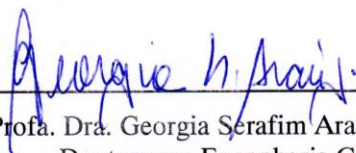 Georgia S. Araújo
Profa. Dra. Georgia Serafim Ara